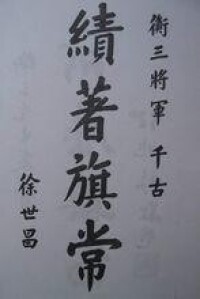 衡三將軍 千古
績著旗常
徐世昌